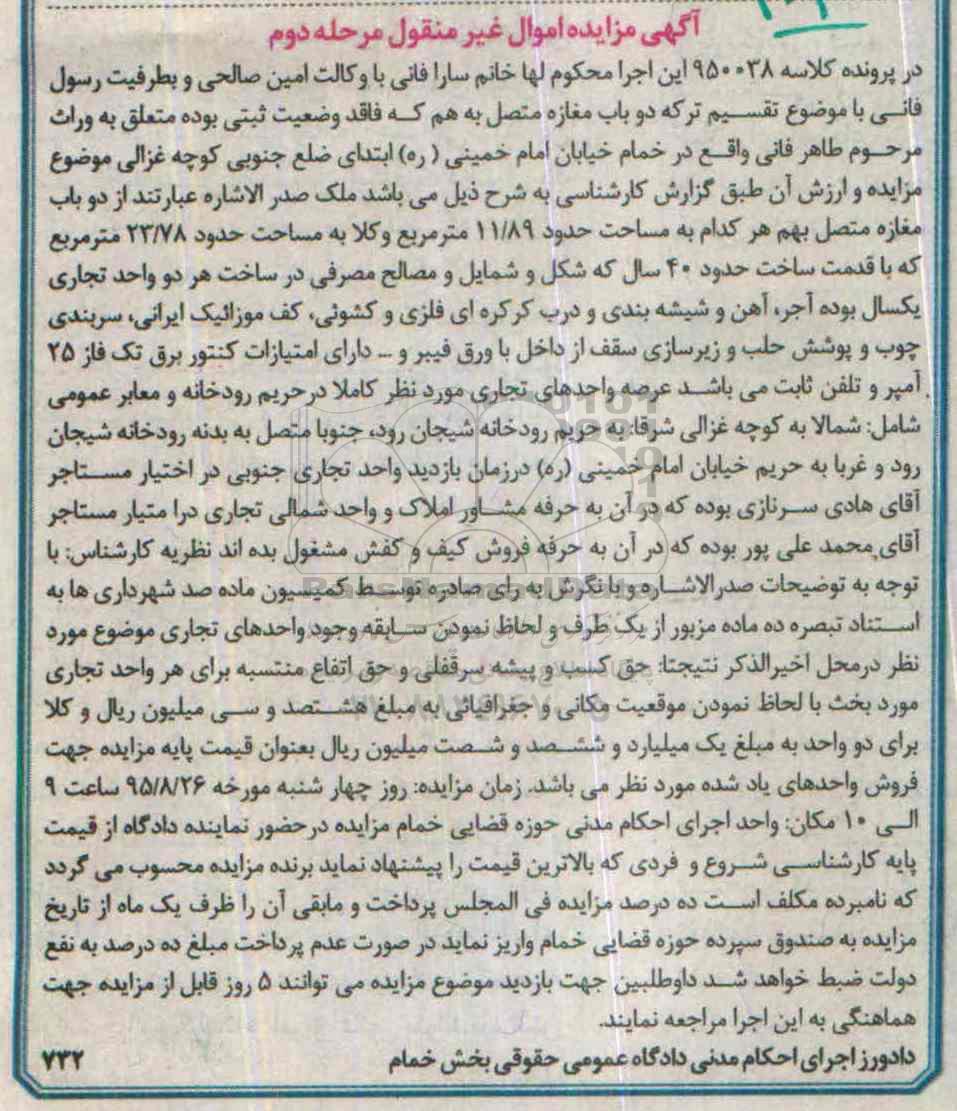 آگهی مزایده اموال غیر منقول مرحله دوم
در پرونده کلاسه ۹۵۰۰۳۸ این اجرا محکوم لها خانم سارا فانی با وکالت امین صالحی و بطرفیت رسول
فانی با موضوع تقسیم ترکه دو باب مغازه متصل به هم که فاقد وضعیت ثبتی بوده متعلق به وراث
مرحوم طاهر فانی واقع در خمام خیابان امام خمینی (ره) ابتدای ضلع جنوبی کوچه غزالی موضوع
مزایده و ارزش آن طبق گزارش کارشناسی به شرح ذیل می باشد ملک صدر الاشاره عبارتند از دو باب
مغازه متصل بهم هر کدام به مساحت حدود ۱۱/۸۹ مترمربع وکلا به مساحت حدود ۲۳/۷۸ مترمربع
که با قدمت ساخت حدود ۴۰ سال که شکل و شمایل و مصالح مصرفی در ساخت هر دو واحد تجاری
یکسال بوده آجر، آهن و شیشه بندی و درب کرکره ای فلزی و کشوئی، کف موزائیک ایرانی، سربندی
چوب و پوشش حلب و زیرسازی سقف از داخل با ورق فیبر و ... دارای امتیازات کنتور برق تک فاز ۲۵
آمپر و تلفن ثابت می باشد عرصه واحدهای تجاری مورد نظر کاملا درحریم رودخانه و معابر عمومی
شامل: شمالا به کوچه غزالی شرقا: به حریم رودخانه شیجان رود، جنوبا متصل به بدنه رودخانه شیجان
رود و غربا به حریم خیابان امام خمینی (ره) درزمان بازدید واحد تجاری جنوبی در اختیار مستاجر
آقای هادی سرنازی بوده که در آن به حرفه مشاور املاک و واحد شمالی تجاری درا متیار مستاجر
آقای محمد علی پور بوده که در آن به حرفه فروش کیف و کفش مشغول بده اند نظریه کارشناس: با
توجه به توضیحات صدرالاشاره و با نگرش به رای صادره توسط کمیسیون ماده صد شهرداری ها به
استناد تبصره ده ماده مزبور از یک طرف و لحاظ نمودن سابقه وجود واحدهای تجاری موضوع مورد
نظر درمحل اخیرالذکر نتیجتا: حق کسب و پیشه سرقفلی و حق اتفاع منتسبه برای هر واحد تجاری
مورد بخث با لحاظ نمودن موقعیت مکانی و جغرافیائی به مبلغ هشتصد و سی میلیون ریال و کلا
برای دو واحد به مبلغ یک میلیارد و ششصد و شصت میلیون ریال بعنوان قیمت پایه مزایده جهت
فروش واحدهای یاد شده مورد نظر می باشد. زمان مزایده: روز چهار شنبه مورخه ۹۵/۸/۲۶ ساعت ۹
الی ۱۰ مکان: واحد اجرای احکام مدنی حوزه قضایی خمام مزایده درحضور نماینده دادگاه از قیمت
پایه کارشناسی شروع و فردی که بالاترین قیمت را پیشنهاد نماید برنده مزایده محسوب می گردد
که نامبرده مکلف است ده درصد مزایده فی المجلس پرداخت و مابقی آن را ظرف یک ماه از تاریخ
مزایده به صندوق سپرده حوزه قضایی خمام واریز نماید در صورت عدم پرداخت مبلغ ده درصد به نفع
دولت ضبط خواهد شد داوطلبین جهت بازدید موضوع مزایده می توانند ۵ روز قابل از مزایده جهت
هماهنگی به این اجرا مراجعه نمایند.
دادورز اجرای احکام مدنی دادگاه عمومی حقوقی بخش خمام ۷۳۲